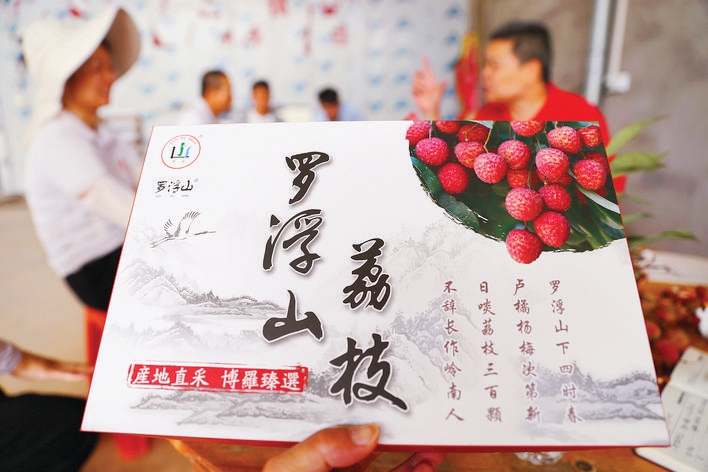 罗浮山®
罗浮山
荔枝
産地直采 博羅臻選
罗浮山下四时春
卢橘杨梅次第新
日啖荔枝三百颗
不辞长作岭南人